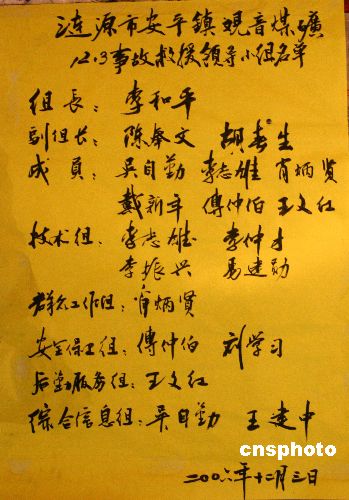 涟源市安平鎮观音煤礦
12.3事故救援领导小组名单
组長：李和平
副组长：陈奉文 胡春生
成員：吴自勤 李志雄 肖炳贤
戴新年 傅仲伯 王文红
技术组：李志雄 李仲才
李振兴 易建勋
群众工作组：肖炳贤
安全保卫组：傅仲伯 刘学习
后勤服务组：王文红
综合信息组：吴自勤 王建中
cnsphoto
二00六年十二月三日